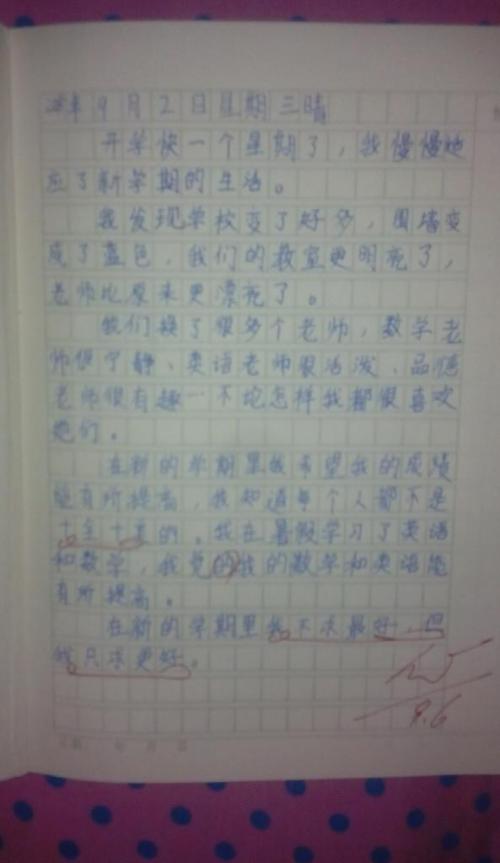 年9月2日星期三晴
开学快一个星期了,我慢慢地
应了新学期的生活。
我发现学校变了好多,围墙变
成了蓝色,我们的教室更明亮了,
老师比原来更漂亮了。
我们换了很多个老师,数学老
师很宁静、英语老师很活泼、品德
老师很有趣一不论怎样我都很喜欢
她们。
在新的学期里我希望我的成绩
能有所提高,我知道每个人都不是
十全十美的。我在暑假学习了英语
和数学,我觉的我的数学和英语能
有所提高。
在新的学期里我不求最好,但
我只求更好。
9.6
年 月 日